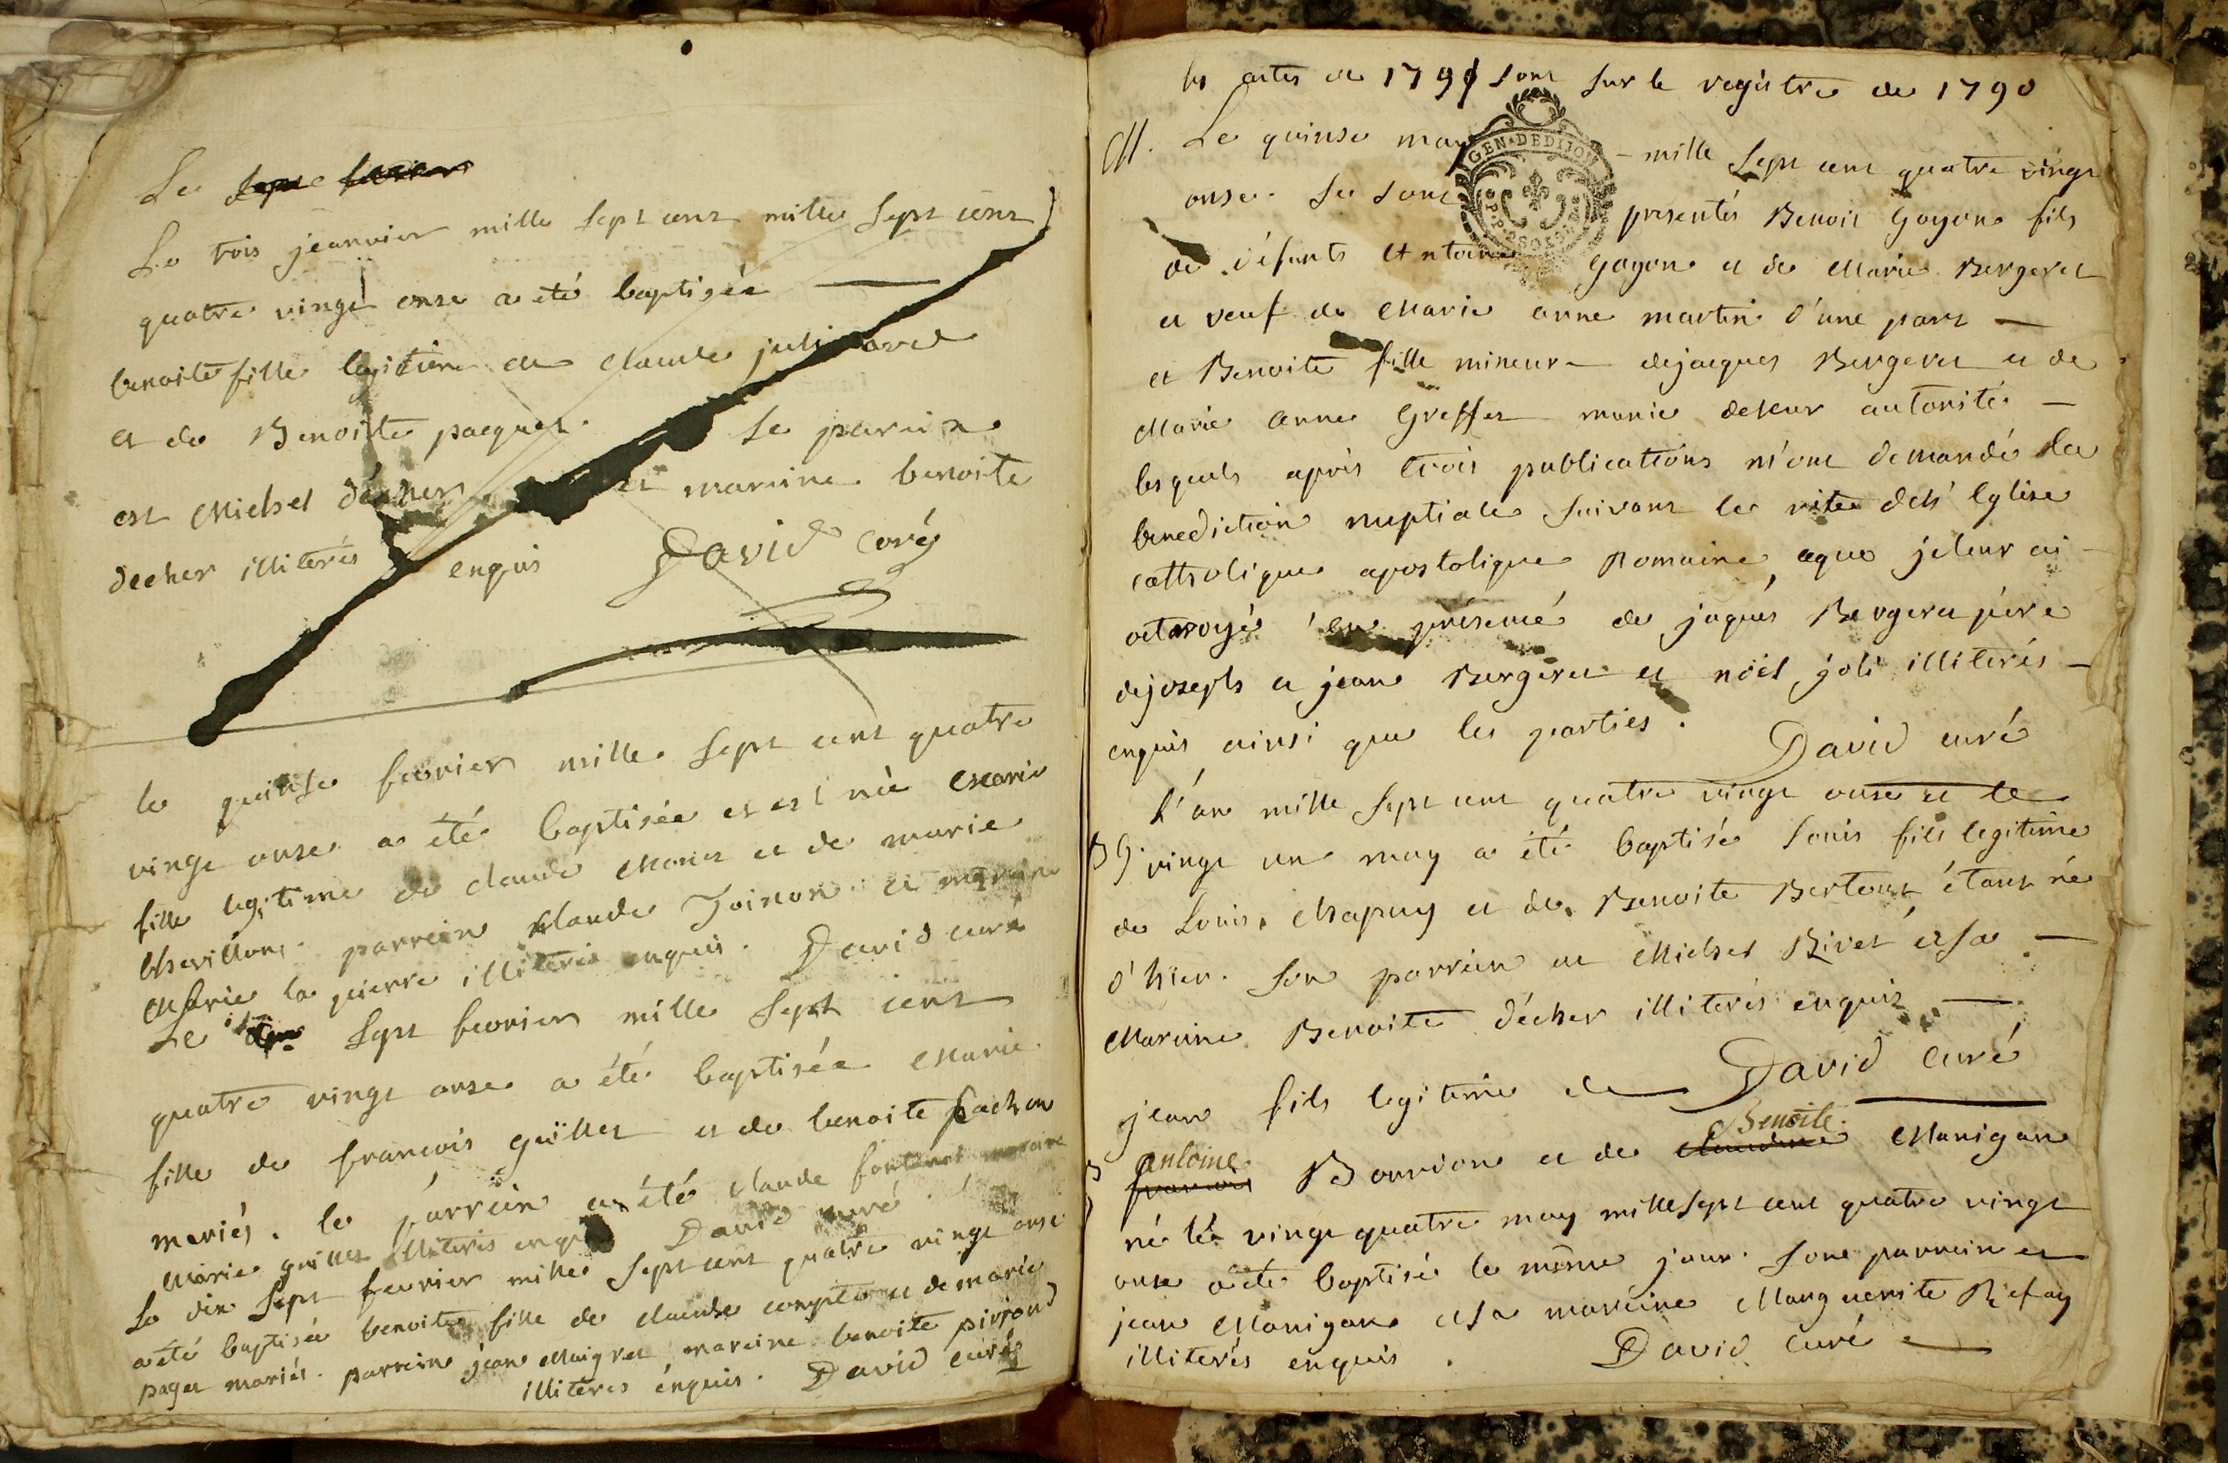 Le
Le trois jeanvier mille sept cent mille sept cent
quatre vingt onse a été baptisée
benoite fille legitime de claude
et de Benoite pacquet. Le parein
est Michel décher et mareine benoite
decher illiterés enquis David curé
le quinse fevrier mille sept cent quatre
vingt onse a été baptisée et est née Marie
fille legitime de claude et de marie
chavillon parrein claude Joinon et mareine
Marie la pierre illiterés enquis. David curé
Le sept fevrier mille sept cent
quatre vingt onse a été baptisée Marie
fille de francois guillet et de benoite pachon
mariés. le parrein a été claude mareine
Marie guillet illiterés enquis David curé
Le dix sept fevrier mille sept cent quatre vingt onse
a été baptisée benoite fille de claude et de marie
paget mariés. parrein jean Maigret mareine benoite
illiteres énquis. David curé
les actes de 1791 sont sur le registre de 1790
M. Le quinse may mille sept cent quatre vingt
GEN. DE DIJON
onse. se sont presentés Benoit Goyon fils
de défunts Antoine goyon et de Marie Bergeret
et veuf de Marie anne martin d'une part
et Benoite fille mineure de jacques Bergeret et de
Marie Anne Greffet munie de leur autorité
lesquels après trois publications m'ont demandé la
benediction nuptiale suivant le rite de l'Eglise
catholique apostolique Romaine, a quo je leur ai
octaroyé en présence de jaques Bergeret père
de joseph et jean Bergeret et noël joli illiterés
enquis ainsi que les parties. David curé
L'an mille sept cent quatre vingt onse et le
B G. vingt un may a été baptisé Louis fils legitime
de Louis Chapuy et de Benoite étant né
d'hier. son parrein est Michel Rivet et sa
Mareine Benoite décher illiterés enquis
David curé
jean fils legitime de
antoine Benoite
francois Bourrion et de claudine Manigan
né le vingt quatre may mille sept cent quatre vingt
onse a été baptisé le même jour. son parrein est
jean Manigan et sa mareine Marguerite
illiterés enquis. David curé